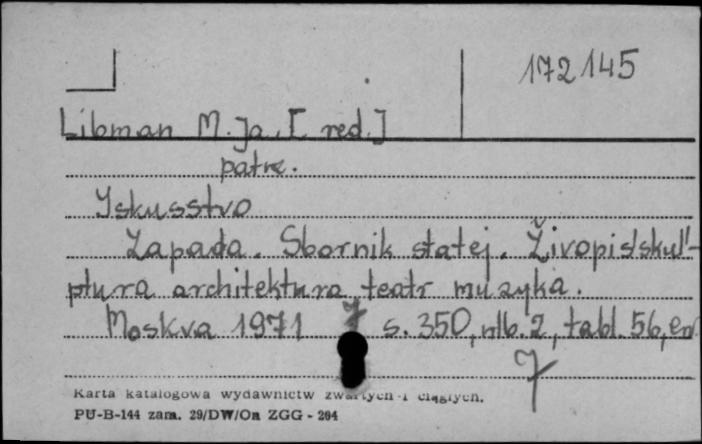 172145
Libman M. Ja. [red.]
patrz.
Iskusstvo
Zapada. Sbornik statej. Živopis'skul'-
ptura architektura teatr muzyka.
Moskva 1971 s. 350, nlb. 2, tabl. 56,
Karta katalogowa wydawnictw zwartych i ciągłych.
PU-B-144 zam. 29/DW/On ZGG - 294